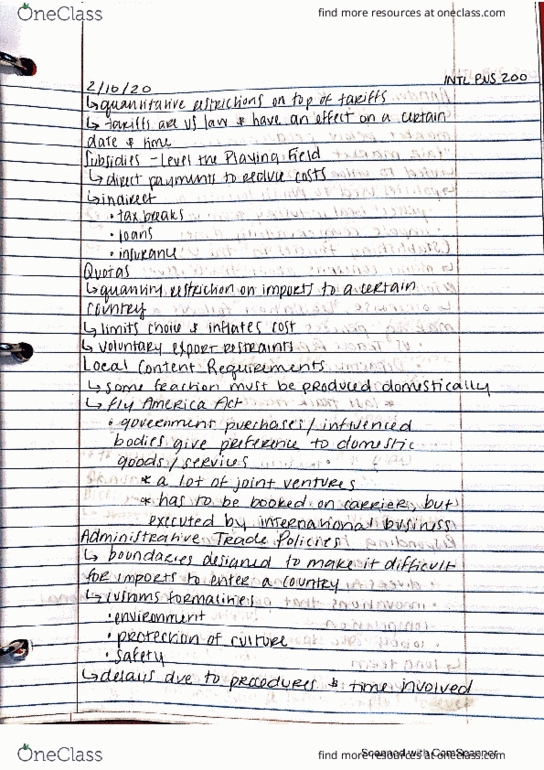 OneClass
find more resources at oneclass.com
2/10/20
INTL BUS 200
↳ quantitative restrictions on top of tariffs
↳ tariffs are US law & have an effect on a certain
date & time
Subsidies - Level the Playing Field
↳ direct payments to reduce costs
↳ indirect
• tax breaks
• loans
• insurance
Quotas
↳ quantity restriction on imports to a certain
country
↳ limits choice & inflates cost
↳ voluntary export restraints
Local Content Requirements
↳ some fraction must be produced domestically
↳ Fly America Act
• government purchases / influenced
bodies give preference to domestic
goods / services
* a lot of joint ventures
* has to be booked on carrier, but
executed by international business
Administrative Trade Policies
↳ boundaries designed to make it difficult
for imports to enter a country
↳ customs formalities
• environment
• protection of culture
• safety
↳ delays due to procedures & time involved
OneClass
find more resources at oneclass.com
Scanned with CamScanner